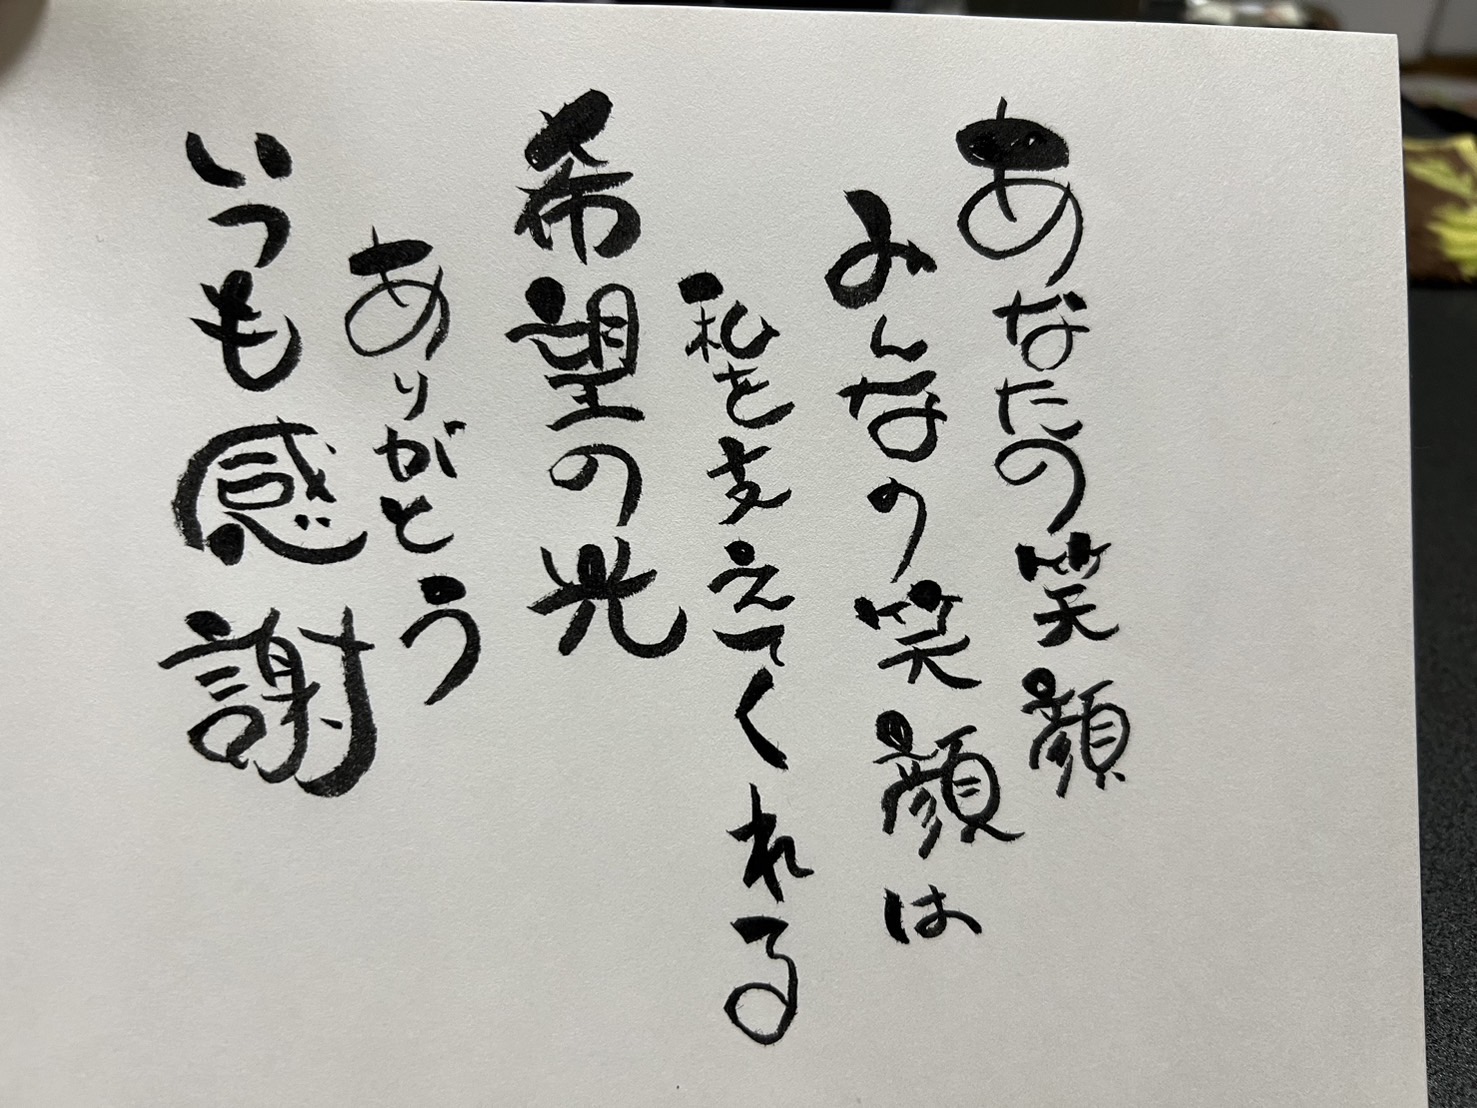 あなたの笑顔
みんなの笑顔は
私を支えてくれる
希望の光
ありがとう
いつも感謝